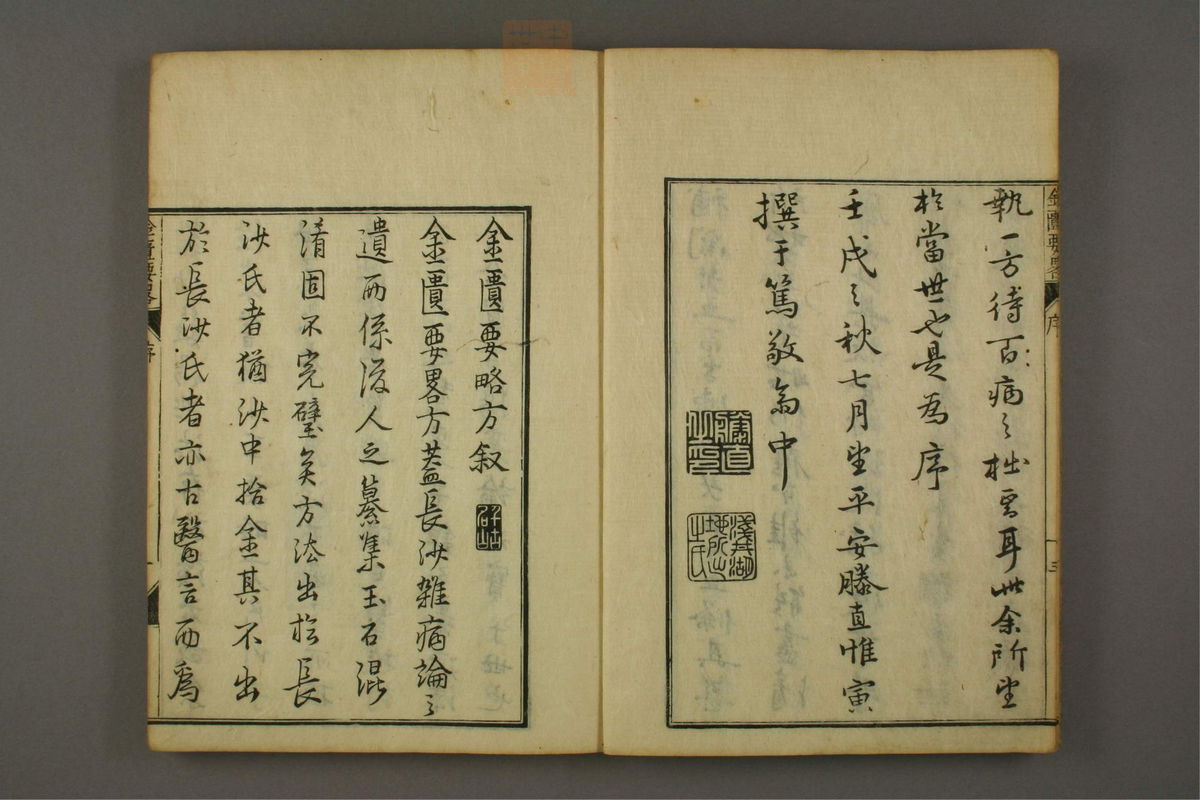 執一方待百病之拙云耳此余所望
於當世也是為序
壬戌之秋七月望平安藤直惟寅
撰于篤敬齋中
藤直
之印
金匱要畧
序
三
金匱要略方叙
金匱要畧方蓋長沙雜病論之
遺而係後人之纂集玉石混
淆固不完璧矣方法出於長
沙氏者猶沙中拾金其不出
於長沙氏者亦古醫言而為
金匱要畧
序
一